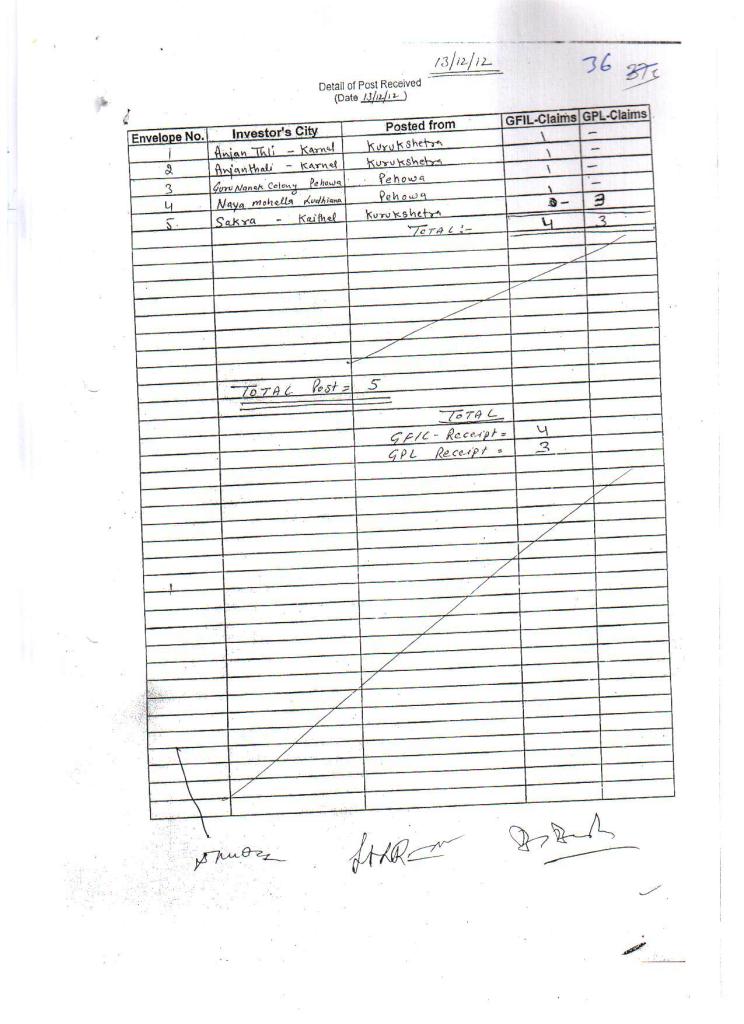 13/12/12
36
Detail of Post Received
(Date 13/12/12)
Envelope No. Investor's City Posted from GFIL-Claims GPL-Claims
1 Anjan Thli - Karnal Kurukshetra 1 -
2 Anjanthali - Karnal Kurukshetra 1 -
3 Guru Nanak Colony Pehowa Pehowa 1 -
4 Naya mohella Ludhiana Pehowa 1 -
5. Sakra - Kaithel Kurukshetra 0- 3
TOTAL :- 4 3
TOTAL Post = 5
TOTAL
GFIL - Receipt = 4
GPL Receipt = 3